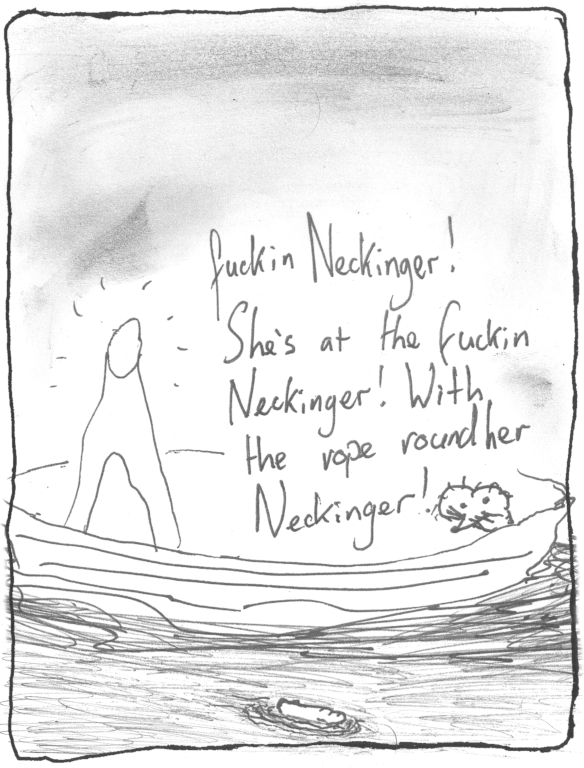 fuckin Neckinger!
She's at the fuckin
Neckinger! With
the rope round her
Neckinger!